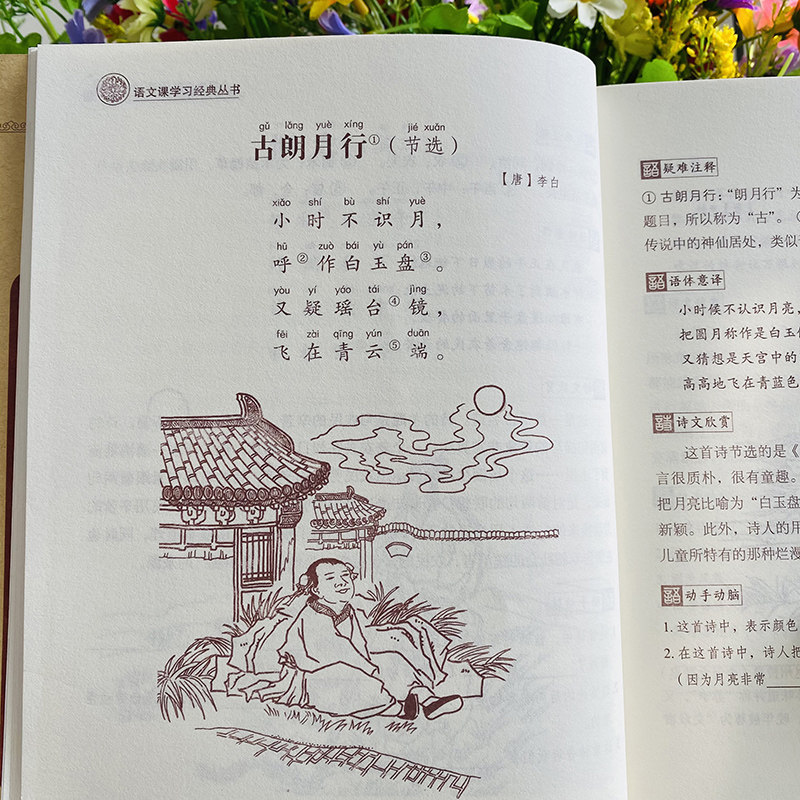 语文课学习经典丛书
gǔ lǎng yuè xíng jié xuǎn
古朗月行①（节选）
【唐】李白
xiǎo shí bù shí yuè
小时不识月，
hū zuò bái yù pán
呼②作白玉盘③。
yòu yí yáo tái jìng
又疑瑶台④镜，
fēi zài qīng yún duān
飞在青云⑤端。
疑难注释
①古朗月行：“朗月行”为
题目，所以称为“古”。（
传说中的神仙居处，类似
语体意译
小时候不认识月亮，
把圆月称作是白玉
又猜想是天宫中的
高高地飞在青蓝色
诗文欣赏
这首诗节选的是《
言很质朴，很有童趣。
把月亮比喻为“白玉盘
新颖。此外，诗人的用
儿童所特有的那种烂漫
动手动脑
1. 这首诗中，表示颜色
2. 在这首诗中，诗人把
（因为月亮非常